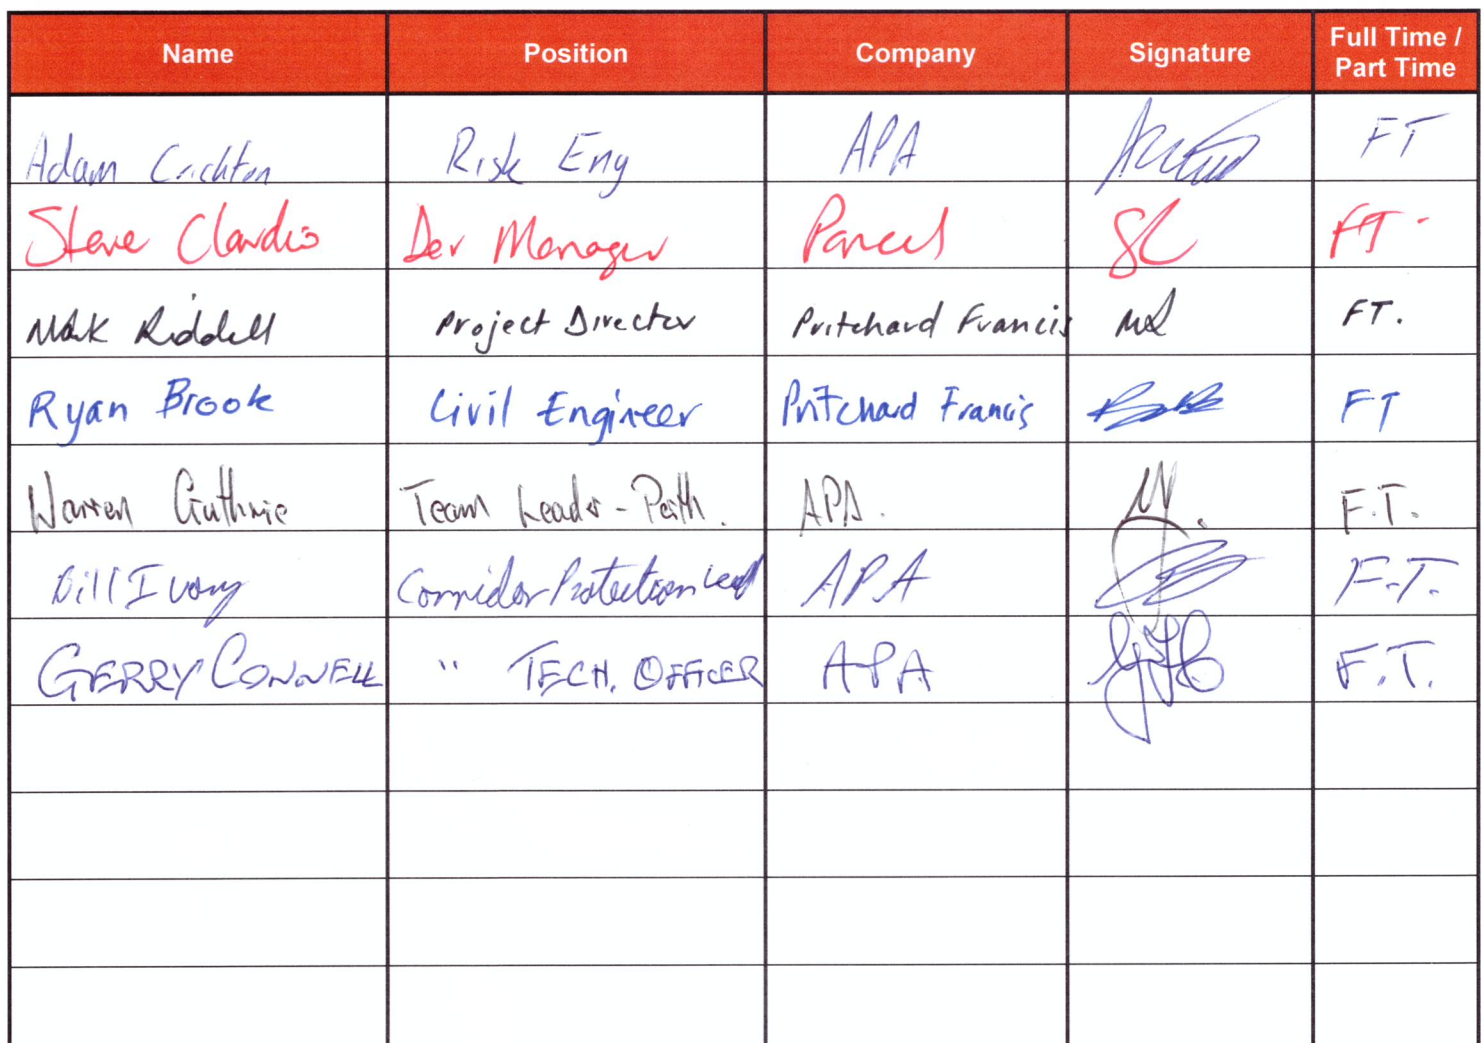 Name Position Company Signature Full Time / Part Time
Adam Crichton Risk Eng APA FT
Steve Claudio Dev Manager Parcel SC FT.
Mark Riddell Project Director Pritchard Francis MR FT.
Ryan Brook Civil Engineer Pritchard Francis FT
Warren Guthrie Team Leader - Perth. APA. F.T.
Bill Ivory Corridor Protection Lead APA F.T.
GERRY CONNELL " TECH. OFFICER APA F.T.